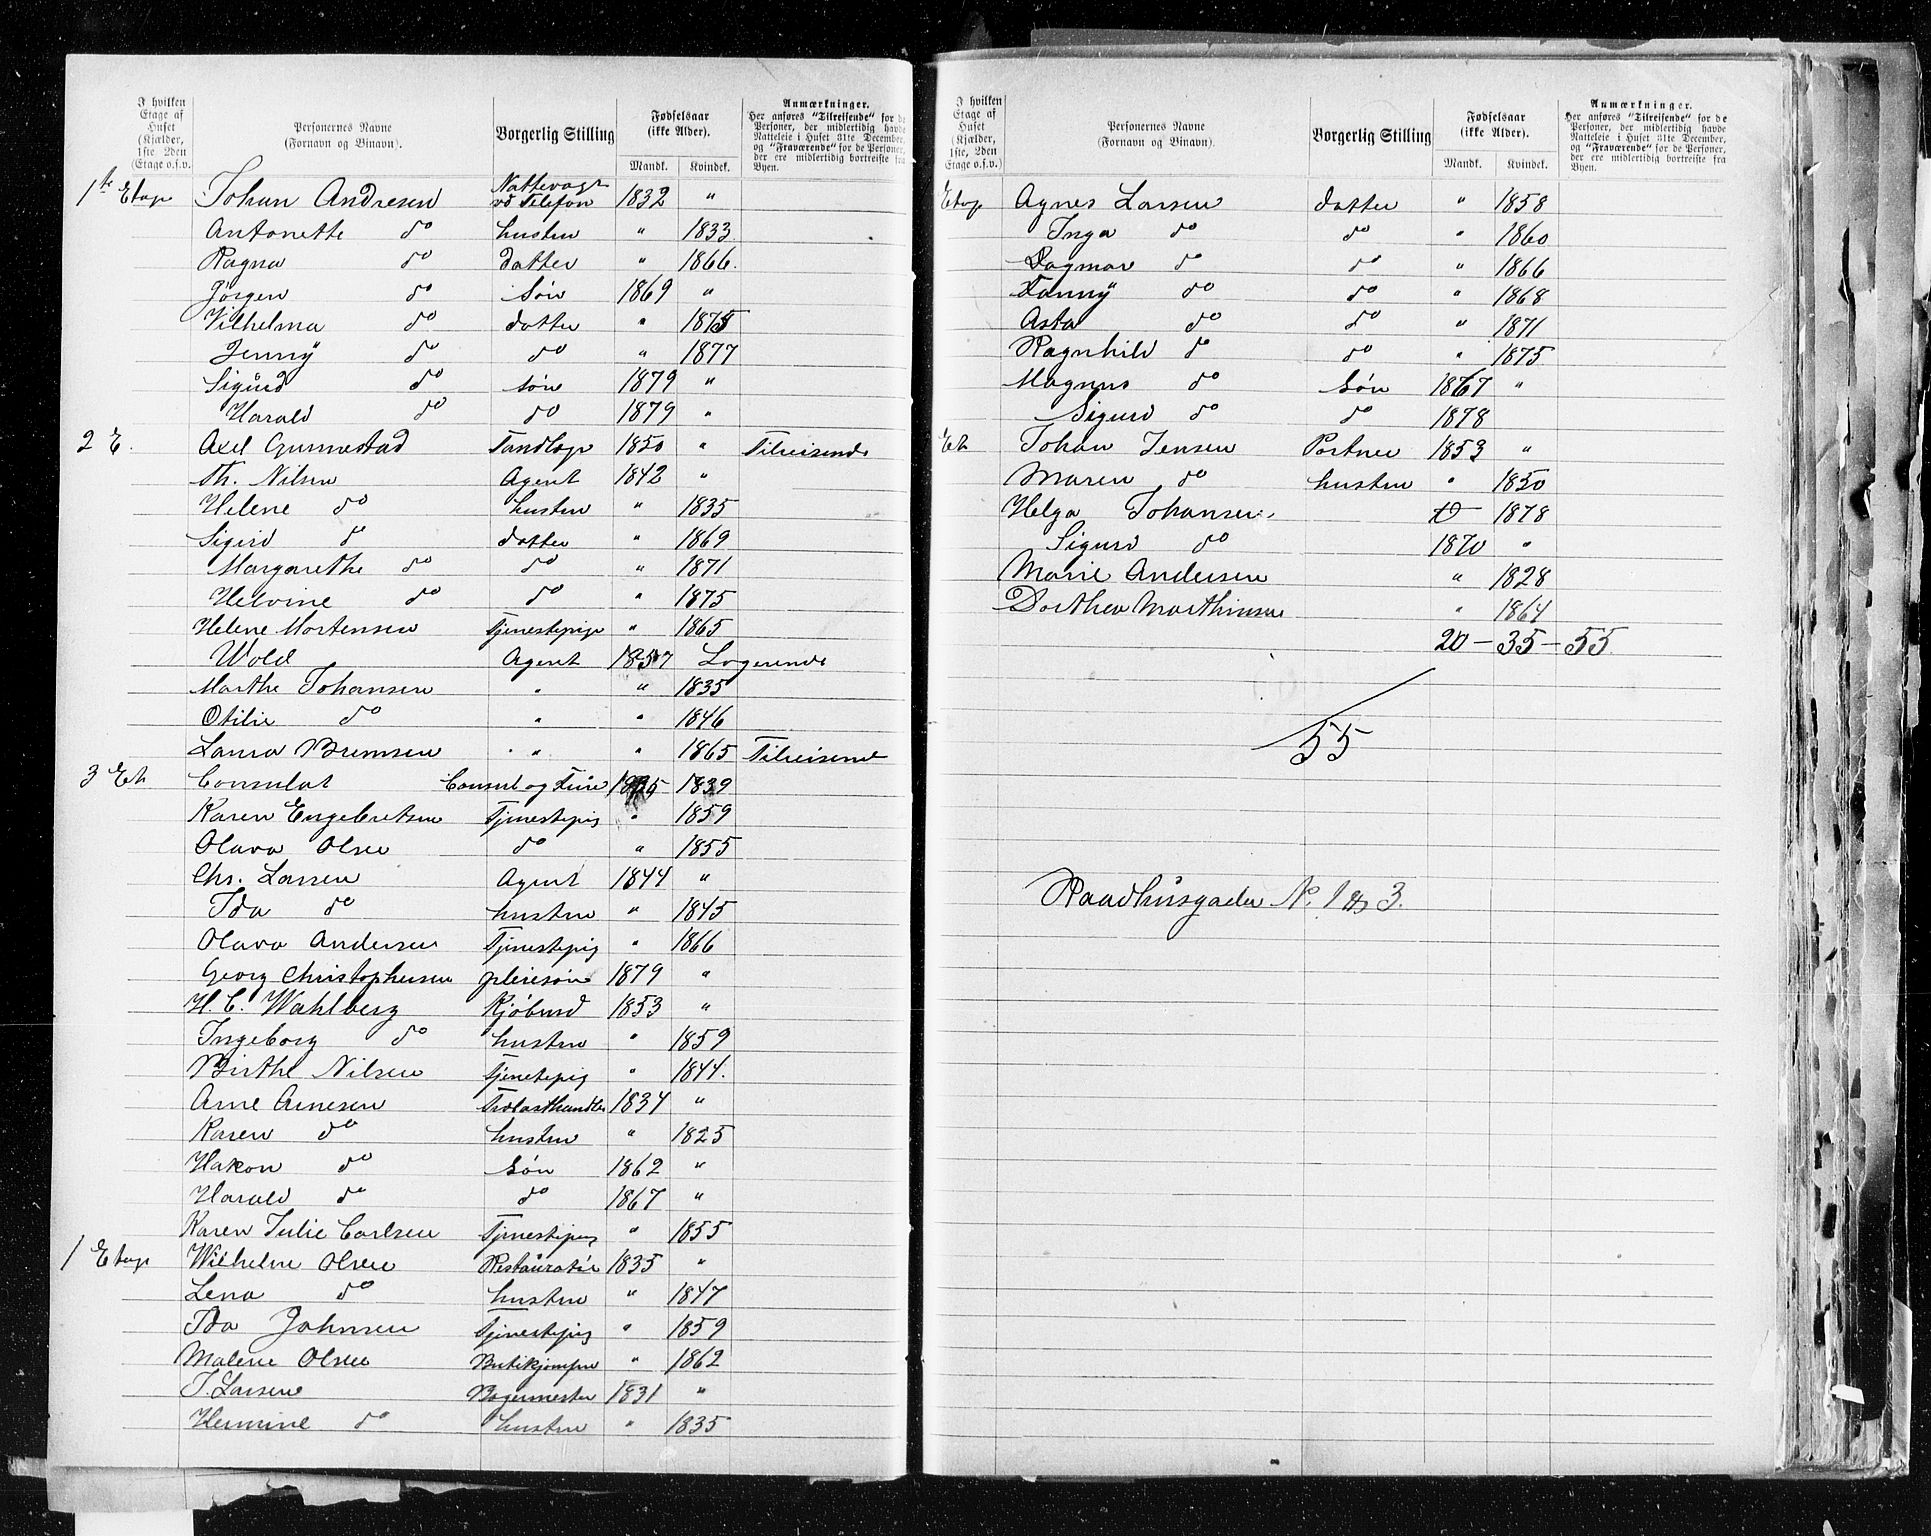 I hvilken Etage af Huset (Kjælder, 1ste, 2den Etage o.s.v.
Personernes Navne (Fornavn og Binavn).
Borgerlig Stilling
Fødselsaar (ikke Alder).
Mandk. Kvindek.
Anmærkninger.
Her anføres "Tilreisende" for de Personer, der midlertidig havde Natteleie i Huset 31te December, og "Fraværende" for de Personer, der ere midlertidig bortreiste fra Byen.
1ste Etage Johan Andresen Nattevagt vd Telefon 1832 "
Antonette do hustru " 1833
Ragna do datter " 1866.
Jørgen do Søn 1869 "
Vilhelma do datter " 1875
Jenny do do " 1877
Sigurd do søn 1879 "
Harald do do 1879 "
2 E. Axel Gunnestad Tandlæge 1850 " Tilreisende
Th. Nilsen Agent 1842 "
Helene do hustru " 1835
Sigrid do datter " 1869
Margarethe do do " 1871
Helvine do do " 1875
Helene Mortensen Tjenestepige " 1865
Wold Agent 1857 Logerende
Marthe Johansen " " 1835
Otilie do " " 1846
Laura Brunsen " " 1865 Tilreisend
3 Et. Consulat Consul og Frue 1839
Karen Engebretsen Tjenestepig " 1859
Olava Olsen do " 1855
Chr. Larsen Agent 1844 "
Ida do hustru " 1845
Olava Andersen Tjenestepig " 1866
Georg Christophersen pleiesøn 1879 "
H. C. Wahlberg Kjøbmd 1853 "
Ingeborg do hustru " 1859
Birthe Nilsen Tjenetepig " 1844.
Arne Arnesen Trælasthandler 1834 "
Karen do hustru " 1825
Hakon do Søn 1862 "
Harald do do 1867 "
Karen Julie Carlsen Tjenestepig " 1855
1 Etage Wilhelm Olsen Restauratør 1835 "
Lena do hustru " 1847
Ida Johnsen Tjenestepig " 1859
Malene Olsen Butikjomfru " 1862
J. Larsen Bagermester 1831 "
Hermine do hustru " 1835
I hvilken Etage af Huset (Kjælder, 1ste, 2den Etage o.s.v.).
Personernes Navne (Fornavn og Binavn).
Borgerlig Stilling
Fødselsaar (ikke Alder).
Mandk. Kvindek.
Anmærkninger.
Her anføres "Tilreisende" for de Personer, der midlertidig havde Natteleie i Huset 31te December, og "Fraværende" for de Personer, der ere midlertidig bortreiste fra Byen.
Etage Agnes Larsen datter " 1858
Inga do do " 1860
Dagmar do do " 1866
Fanny do do " 1868
Asta do do " 1871
Ragnhild do do " 1875
Magnus do Søn 1867 "
Sigurd do do 1878
Et. Johan Jensen Portner 1853 "
Maren do hustru " 1850
Helga Johansen 1878
Sigurd do 1870 "
Marie Andersen " 1828
Dorthea Marthinsen " 1864
20 - 35 - 55
55
Raadhusgaden No. 1 og 3.